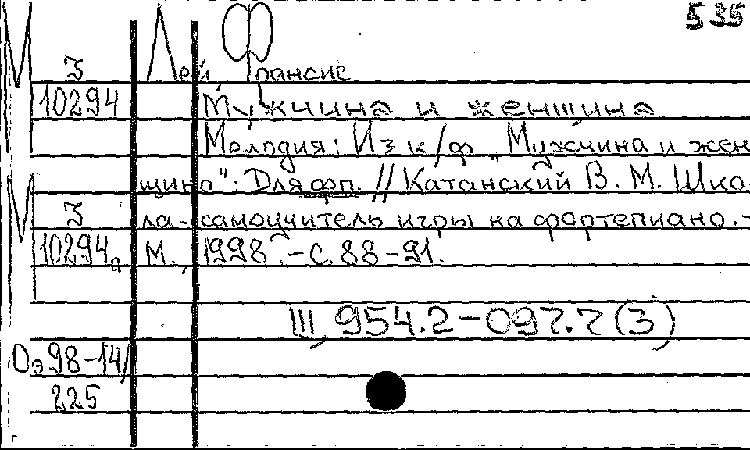 535
М З Лей Франсис
10294 Мужчина и женщина
Мелодия: Из к/ф „Мужчина и жен
щина": Для фп. // Катанский В. М. Шко
М З ла-самоучитель игры на фортепиано. -
10294а М., 1998. - С. 88-91.
III, 954.2-097.7(3)
Оэ98-14/
225